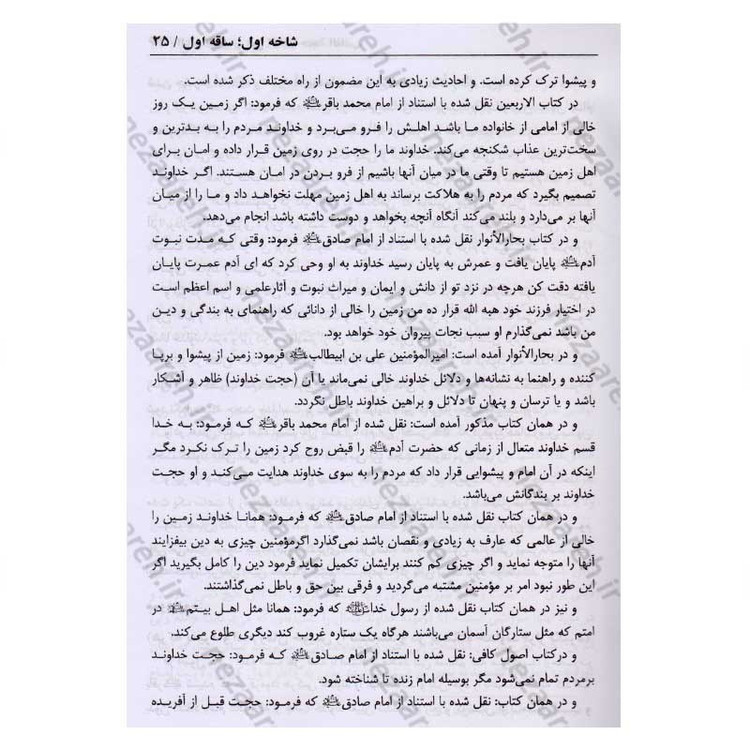 شاخه اول؛ ساقه اول / ۲۵
و پیشوا ترک کرده است. و احادیث زیادی به این مضمون از راه مختلف ذکر شده است.
در کتاب الاربعین نقل شده با استناد از امام محمد باقر که فرمود: اگر زمین یک روز
خالی از امامی از خانواده ما باشد اهلش را فرو می‌برد و خداوند مردم را به بدترین و
سخت‌ترین عذاب شکنجه می‌کند. خداوند ما را حجت در روی زمین قرار داده و امان برای
اهل زمین هستیم تا وقتی ما در میان آنها باشیم از فرو بردن در امان هستند. اگر خداوند
تصمیم بگیرد که مردم را به هلاکت برساند به اهل زمین مهلت نخواهد داد و ما را از میان
آنها بر می‌دارد و بلند می‌کند آنگاه آنچه بخواهد و دوست داشته باشد انجام می‌دهد.
و در کتاب بحارالأنوار نقل شده با استناد از امام صادق فرمود: وقتی که مدت نبوت
آدم پایان یافت و عمرش به پایان رسید خداوند به او وحی کرد که ای آدم عمرت پایان
یافته دقت کن هرچه در نزد تو از دانش و ایمان و میراث نبوت و آثارعلمی و اسم اعظم است
در اختیار فرزند خود هبه الله قرار ده من زمین را خالی از دانائی که راهنمای به بندگی و دین
من باشد نمی‌گذارم او سبب نجات پیروان خود خواهد بود.
و در بحارالأنوار آمده است: امیرالمؤمنین علی بن ابیطالب فرمود: زمین از پیشوا و برپا
کننده و راهنما به نشانه‌ها و دلائل خداوند خالی نمی‌ماند یا آن (حجت خداوند) ظاهر و آشکار
باشد و یا ترسان و پنهان تا دلائل و براهین خداوند باطل نگردد.
و در همان کتاب مذکور آمده است: نقل شده از امام محمد باقر که فرمود: به خدا
قسم خداوند متعال از زمانی که حضرت آدم را قبض روح کرد زمین را ترک نکرد مگر
اینکه در آن امام و پیشوایی قرار داد که مردم را به سوی خداوند هدایت می‌کند و او حجت
خداوند بر بندگانش می‌باشد.
و در همان کتاب نقل شده با استناد از امام صادق که فرمود: همانا خداوند زمین را
خالی از عالمی که عارف به زیادی و نقصان باشد نمی‌گذارد اگرمؤمنین چیزی به دین بیفزایند
آنها را متوجه نماید و اگر چیزی کم کنند برایشان تکمیل نماید فرمود دین را کامل بگیرید اگر
این طور نبود امر بر مؤمنین مشتبه می‌گردید و فرقی بین حق و باطل نمی‌گذاشتند.
و نیز در همان کتاب نقل شده از رسول خدا که فرمود: همانا مثل اهل بیتم در
امتم که مثل ستارگان آسمان می‌باشند هرگاه یک ستاره غروب کند دیگری طلوع می‌کند.
و درکتاب اصول کافی: نقل شده با استناد از امام صادق که فرمود: حجت خداوند
برمردم تمام نمی‌شود مگر بوسیله امام زنده تا شناخته شود.
و در همان کتاب: نقل شده با استناد از امام صادق که فرمود: حجت قبل از آفریده
nezaareh.ir